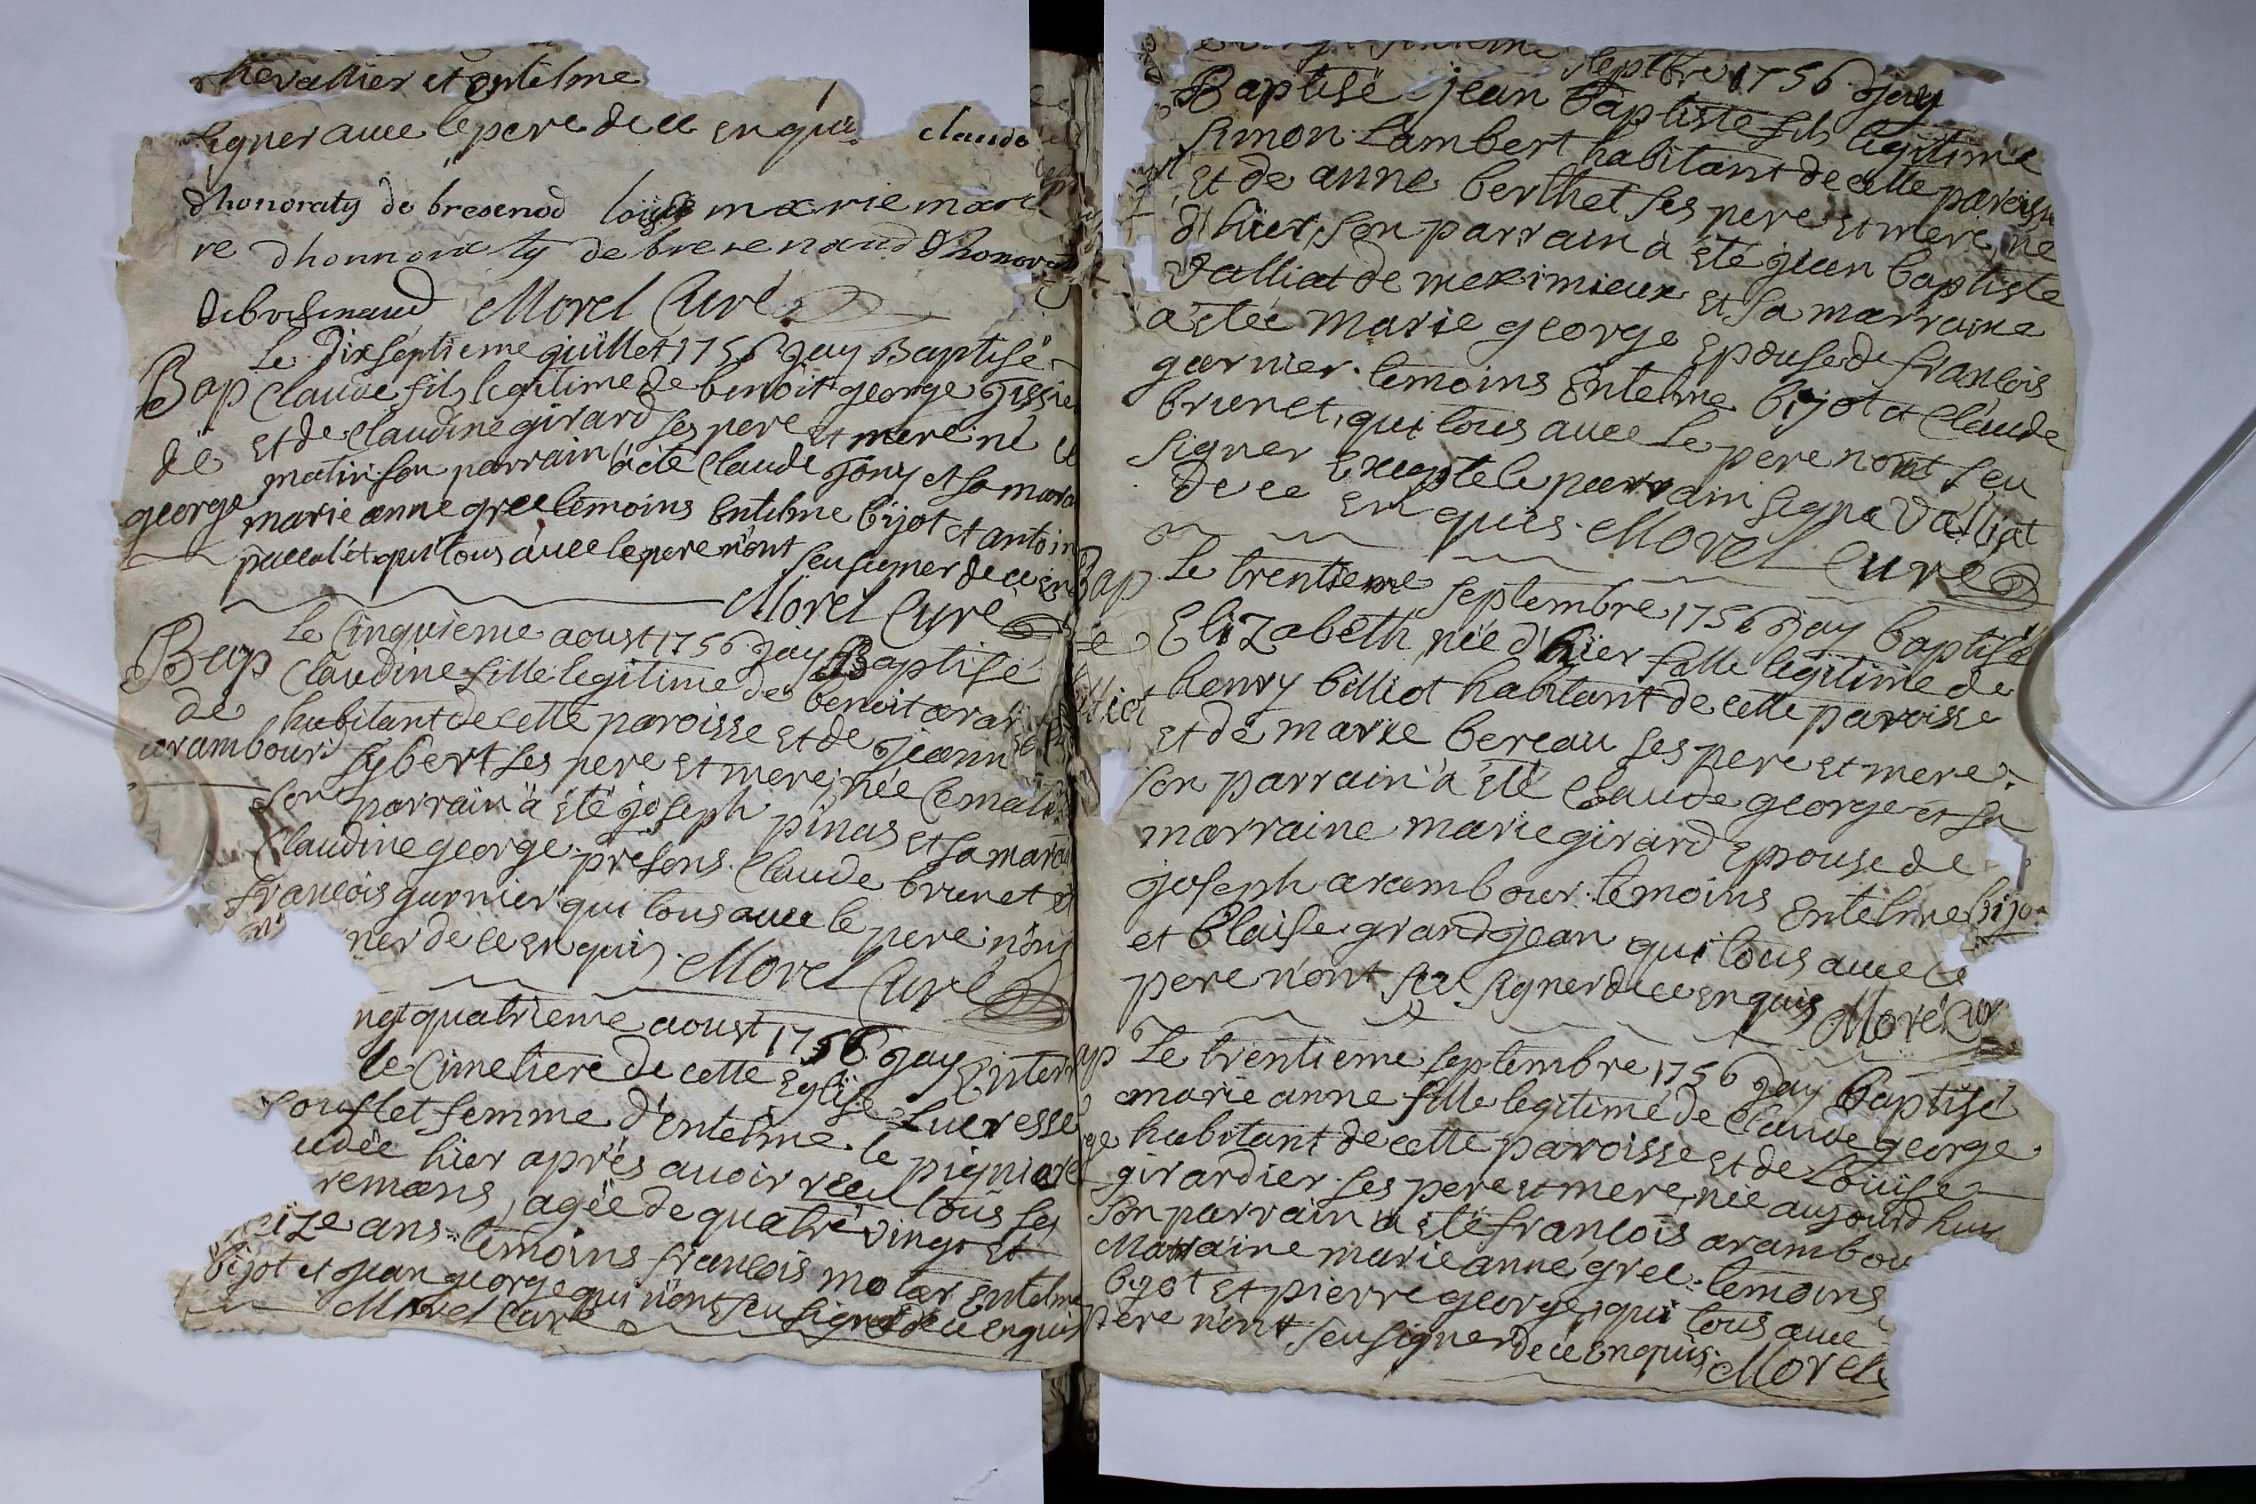 chevallier et entelme
signer avec le pere de ce enquis claude
dhonoraty de bresenod loüise marie marc
re dhonnoraty de bresenaud Dhonora
de bresenaud Morel Curé
Le dixseptieme juillet 1756 j'ay Baptisé
Bap Claude fils legitime de benoit george tissie
de et de claudine girard ses pere et mere né ce
matin. son parrain à été claude Jony et sa mara
george marie anne gree temoins Entelme bijot et antoin
qui tous avec le pere n'ont seu signer de ce en
Morel Curé
Le Cinquieme aoust 1756 j'ay Baptisé
Bap Claudine fille legitime de benoit aram
de habitant de cette paroisse et de jeann
arambour sybert ses pere et mere, née ce matin
son parrain à été joseph pinas et sa marai
Claudine george. presens. Claude brunet et
françois garnier qui tous avec le pere n'ont
ner de ce enquis. Morel Curé
ngt quatrieme aoust 1756 j'ay Enterr
le cimetiere de cette Eglise Lucresse
souflet femme d'Entelme le pigniare
cedée hier aprés avoir reçu tous ses
remans, agée de quatre vingt et
eize ans. temoins françois molar Entelme
bijot et jean george qui n'ont seu signer de ce enquis
Morel Curé
septbre 1756 j'ay
Baptisé jean baptiste fils legitime
simon Lambert habitant de cette paroisse
et de anne berthet ses pere et mere, né
d'hier, son parrain à été jean baptiste
Valliat de meximieux et sa marraine
a étée marie george Epouse de françois
garnier. temoins Entelme bijot et Claude
brunet, qui tous avec le pere n'ont seu
signer excepté le parrain signé Valliat
de ce enquis. Morel Curé
Bap Le trentieme septembre 1756 j'ay baptisé
Elizabeth, née d'hier fille legitime de
henry billiot habitant de cette paroisse
et de marie bereau ses pere et mere.
son parrain à été Claude george et sa
marraine marie girard Epouse de
joseph arambour. temoins Entelme bijo
et blaise grandjean qui tous avec le
pere n'ont seu signer de ce enquis Morel Cur
ap Le trentieme septembre 1756 j'ay baptisé
marie anne fille legitime de Claude george
ge habitant de cette paroisse et de Loüise
girardier. ses pere et mere, née aujourdhuy
Son parrain a été françois arambou
Marraine marie anne gree. temoins
bijot et pierre george, qui tous avec
pere n'ont seu signer de ce enquis. Morel